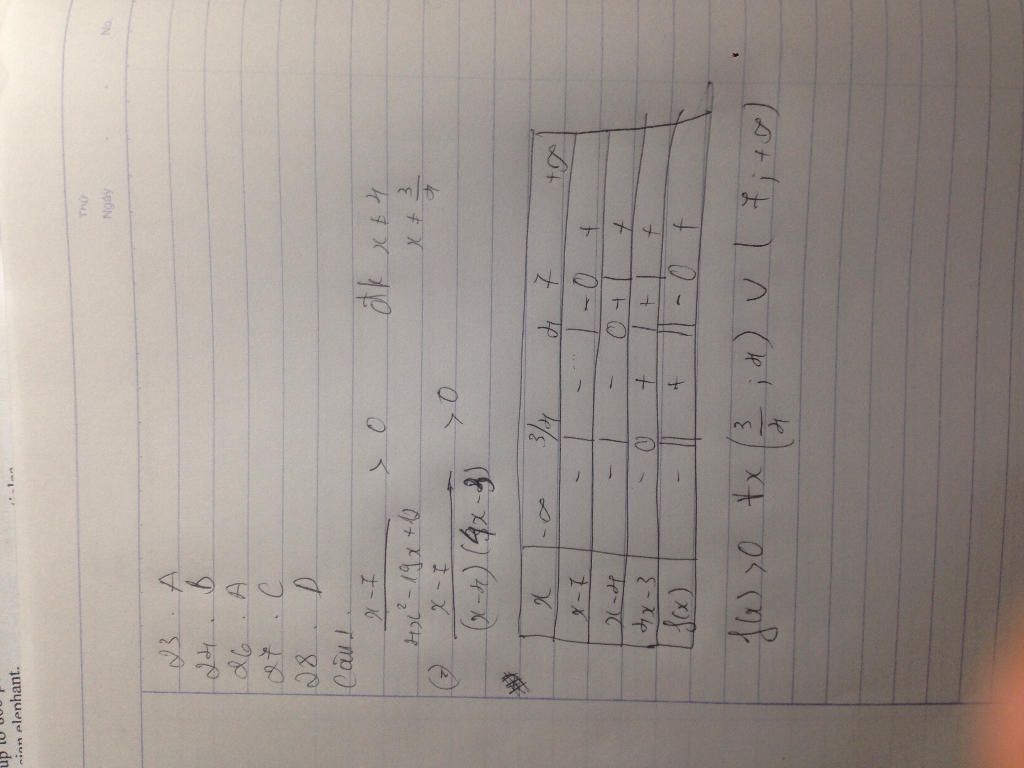 No.
Thứ
Ngày
23. A
24. B
26. A
27. C
28. D
Câu 1.
x-7 / 4x²-19x+12 > 0 đk x ≠ 4
x ≠ 3/4
x-7 / (x-4)(4x-3) > 0
x -∞ 3/4 4 7 +∞
x-7 - | - | - 0 +
x-4 - | - 0 + | +
4x-3 - 0 + | + | +
f(x) - || + || - 0 +
f(x) > 0 ∀x (3/4 ; 4) ∪ (7 ; +∞)
elephant.